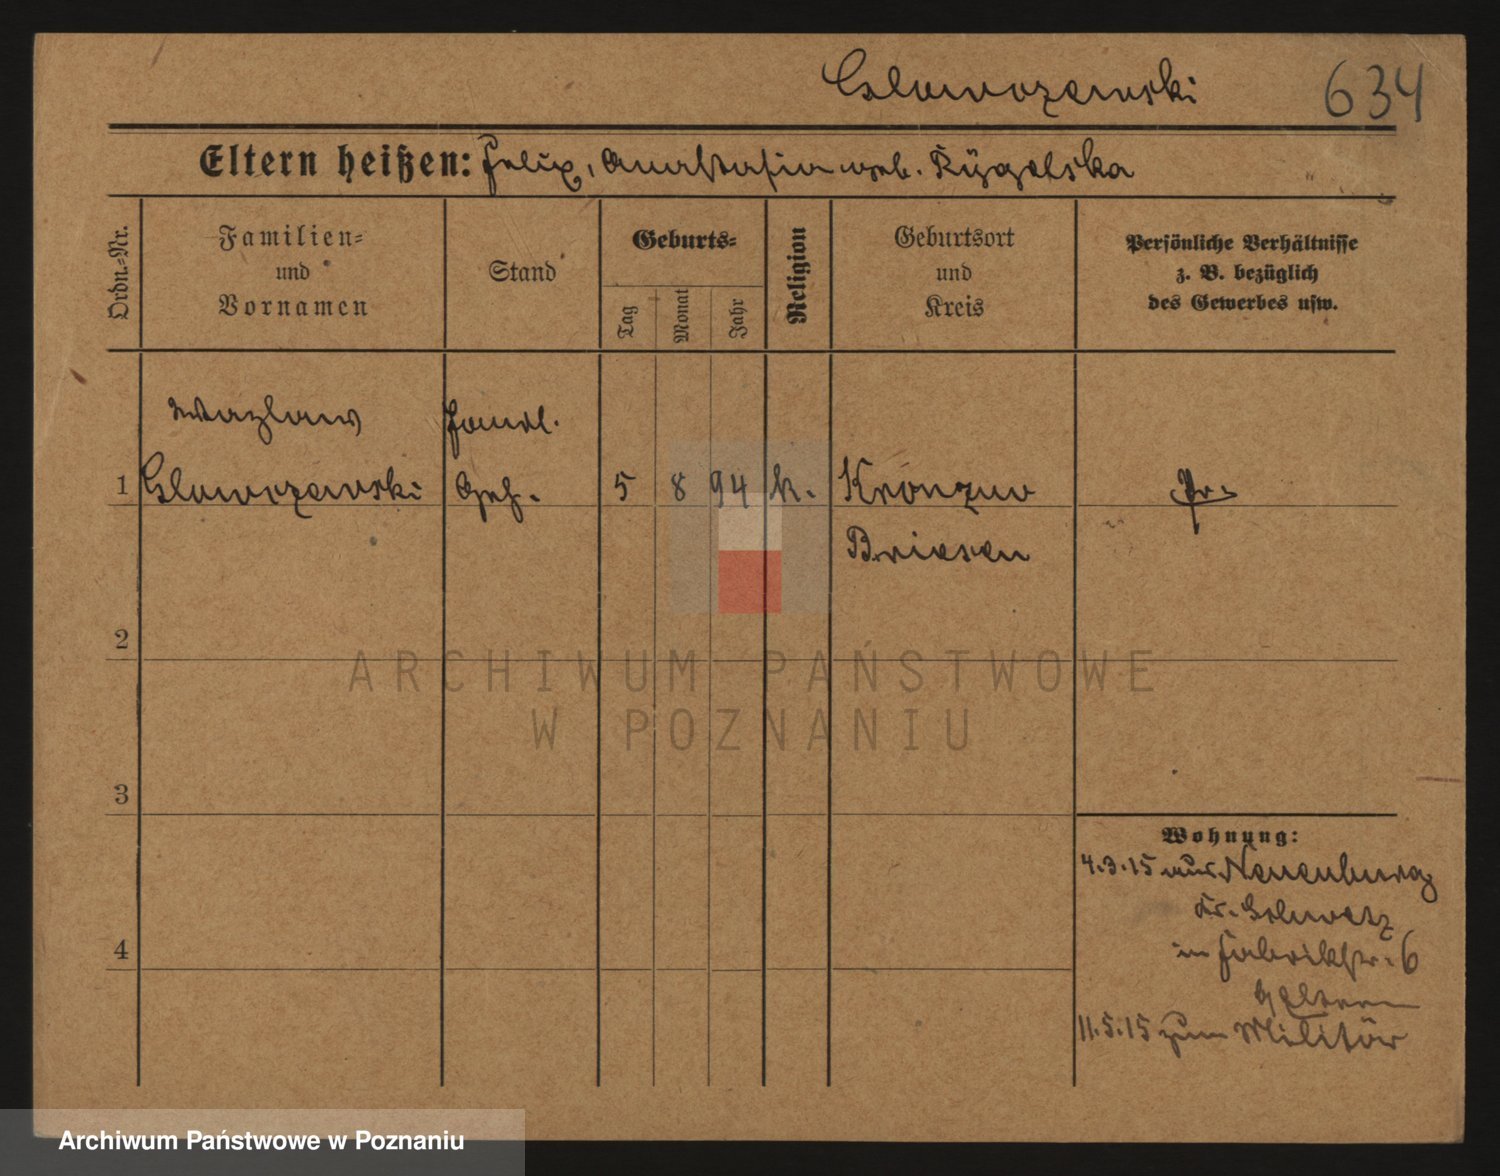 Glowczewski 634
Eltern heißen: Felix, Anastasia geb. Rygelska
Ordn.-Nr.
Familien-
und
Vornamen
Stand
Geburts-
Tag
Monat
Jahr
Religion
Geburtsort
und
Kreis
Persönliche Verhältnisse
z. B. bezüglich
des Gewerbes usw.
Wazlaw Handl.
1 Glowczewski Geh. 5 8 94 k. Kronzno Pr.
Briesen
2
3
4
Wohnung:
4.3.15 aus Neuenburg
Kr. Schwetz
in Fabrikstr. 6
b/ Eltern
11.5.15 zum Militär
ARCHIWUM PAŃSTWOWE
W POZNANIU
Archiwum Państwowe w Poznaniu